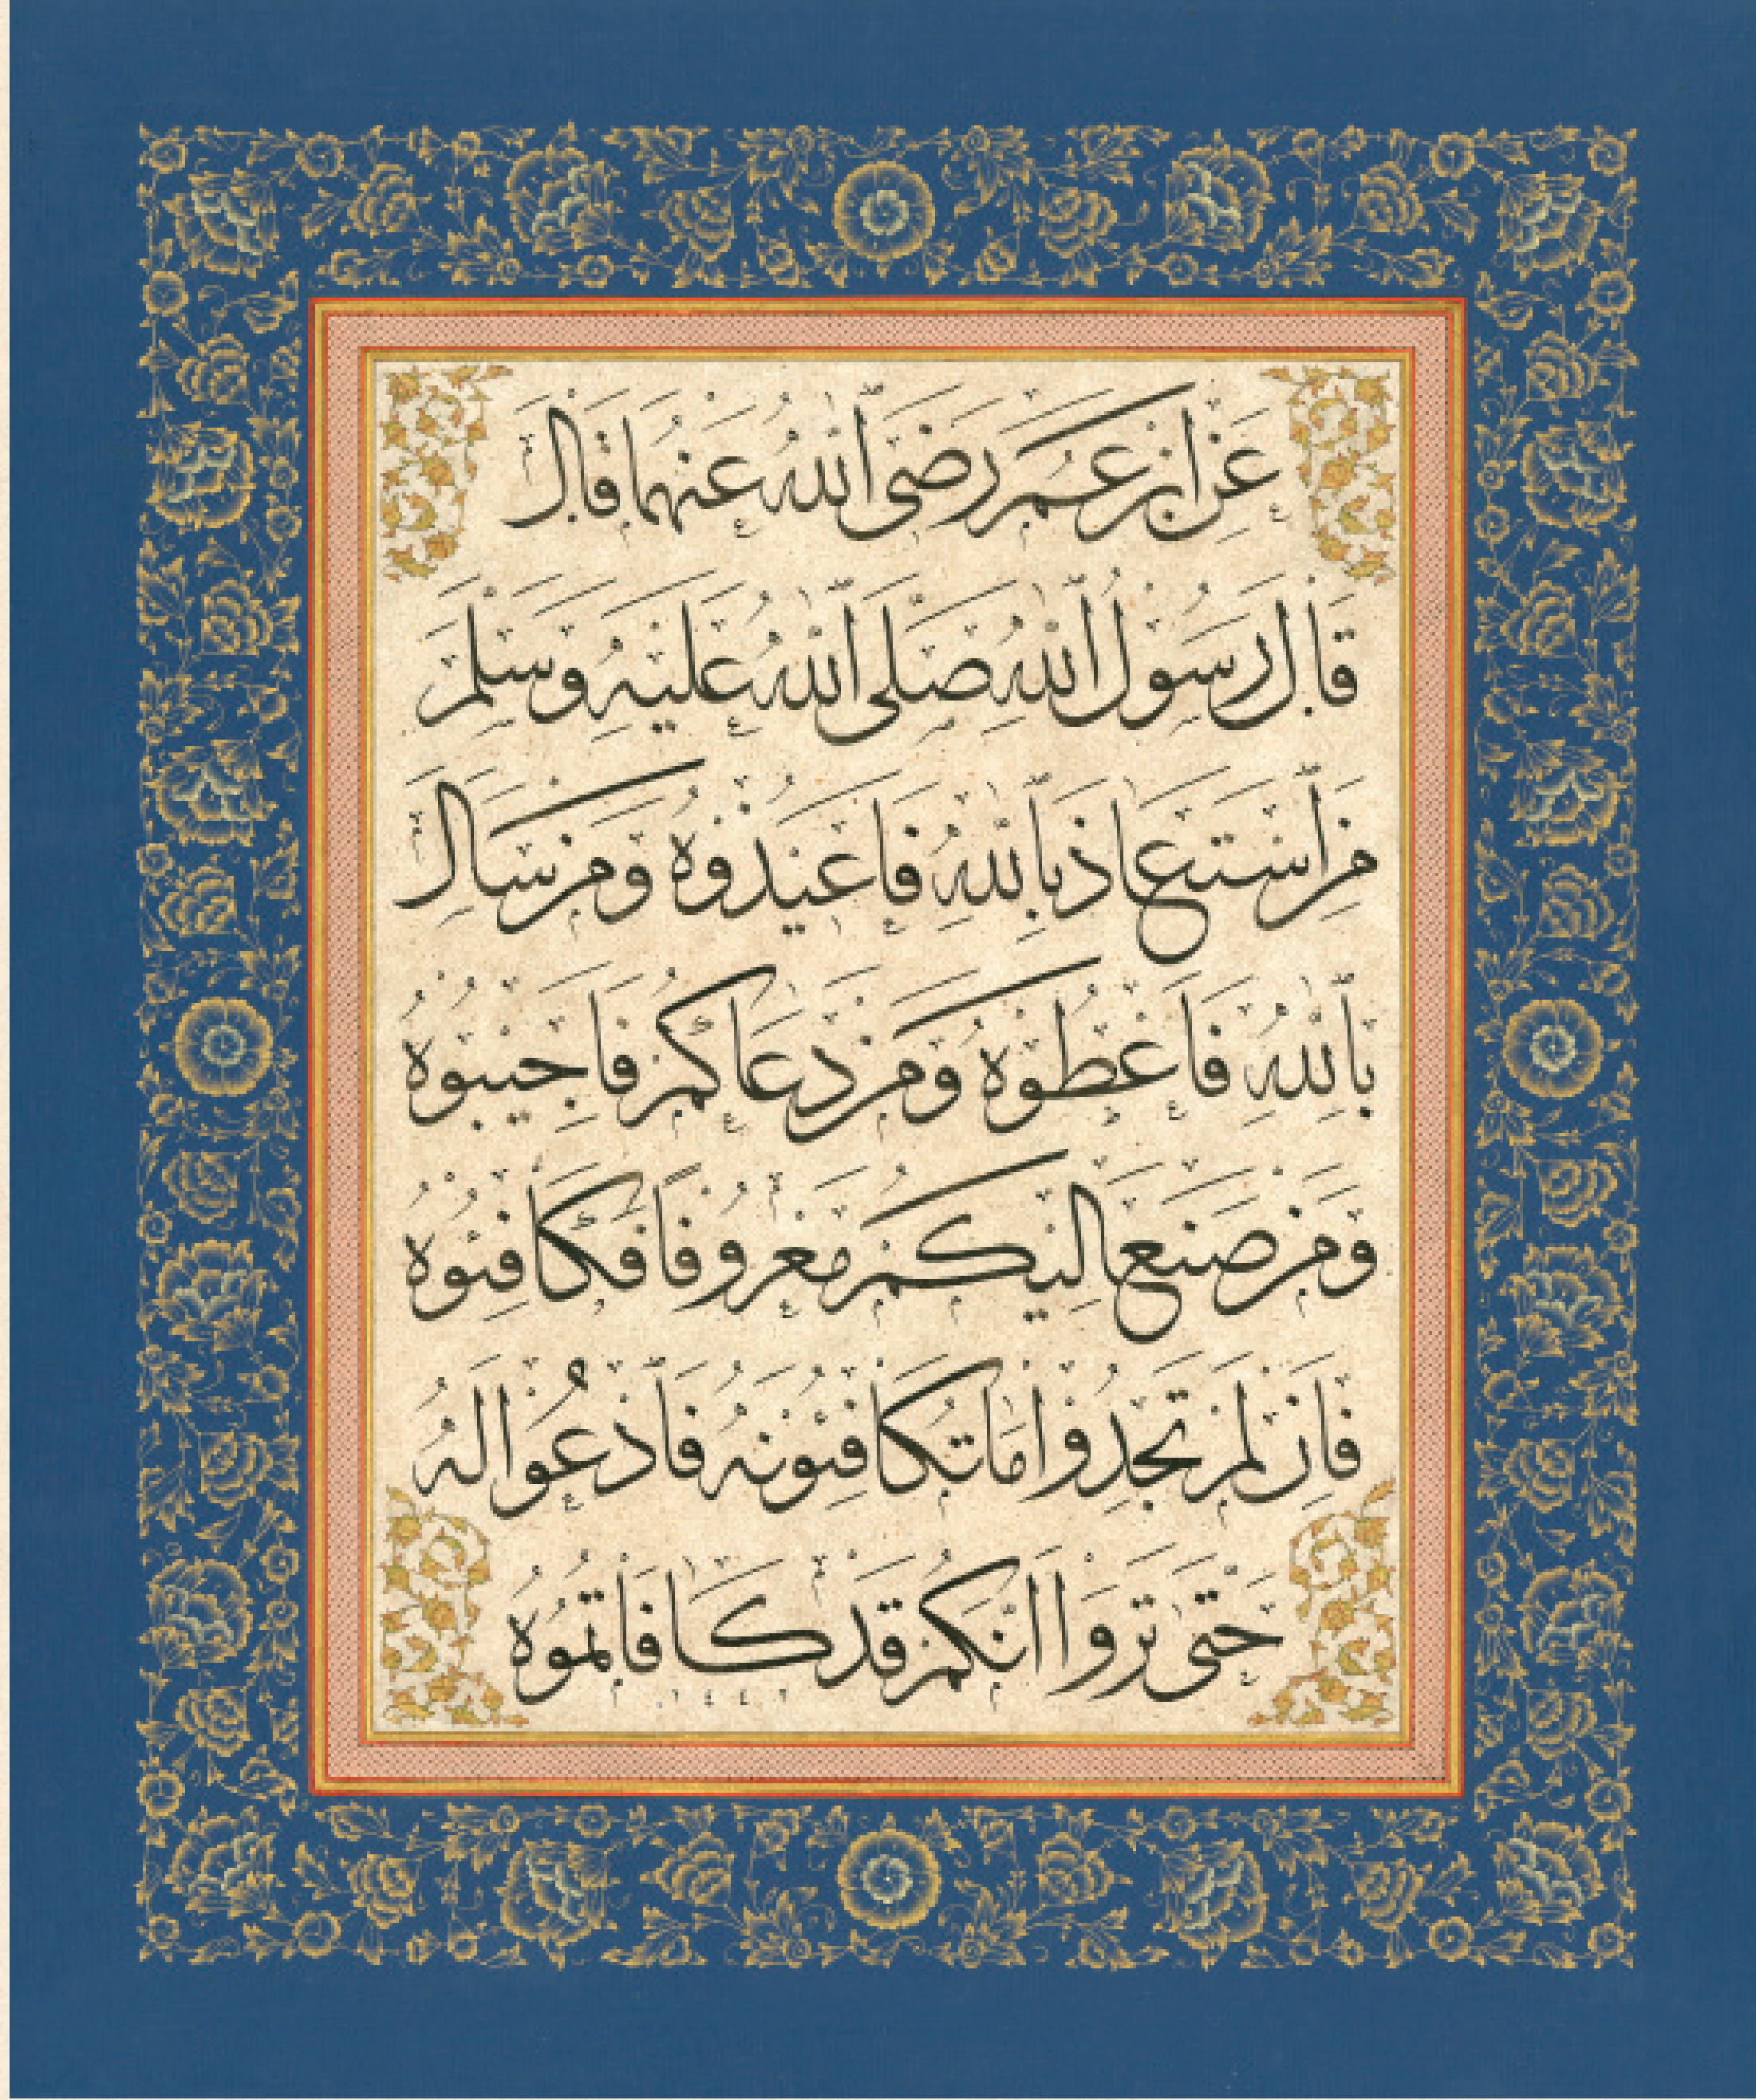 عَنِ ابْنِ عُمَرَ رَضِيَ اللهُ عَنْهُمَا قَالَ
قَالَ رَسُولُ اللهِ صَلَّى اللهُ عَلَيْهِ وَسَلَّمَ
مَنِ اسْتَعَاذَ بِاللهِ فَاَعِيذُوهُ وَمَنْ سَاَلَ
بِاللهِ فَاَعْطُوهُ وَمَنْ دَعَاكُمْ فَاَجِيبُوهُ
وَمَنْ صَنَعَ اِلَيْكُمْ مَعْرُوفًا فَكَافِئُوهُ
فَاِنْ لَمْ تَجِدُوا مَا تُكَافِئُونَهُ فَادْعُوا لَهُ
حَتَّى تَرَوْا اَنَّكُمْ قَدْ كَافَاْتُمُوهُ